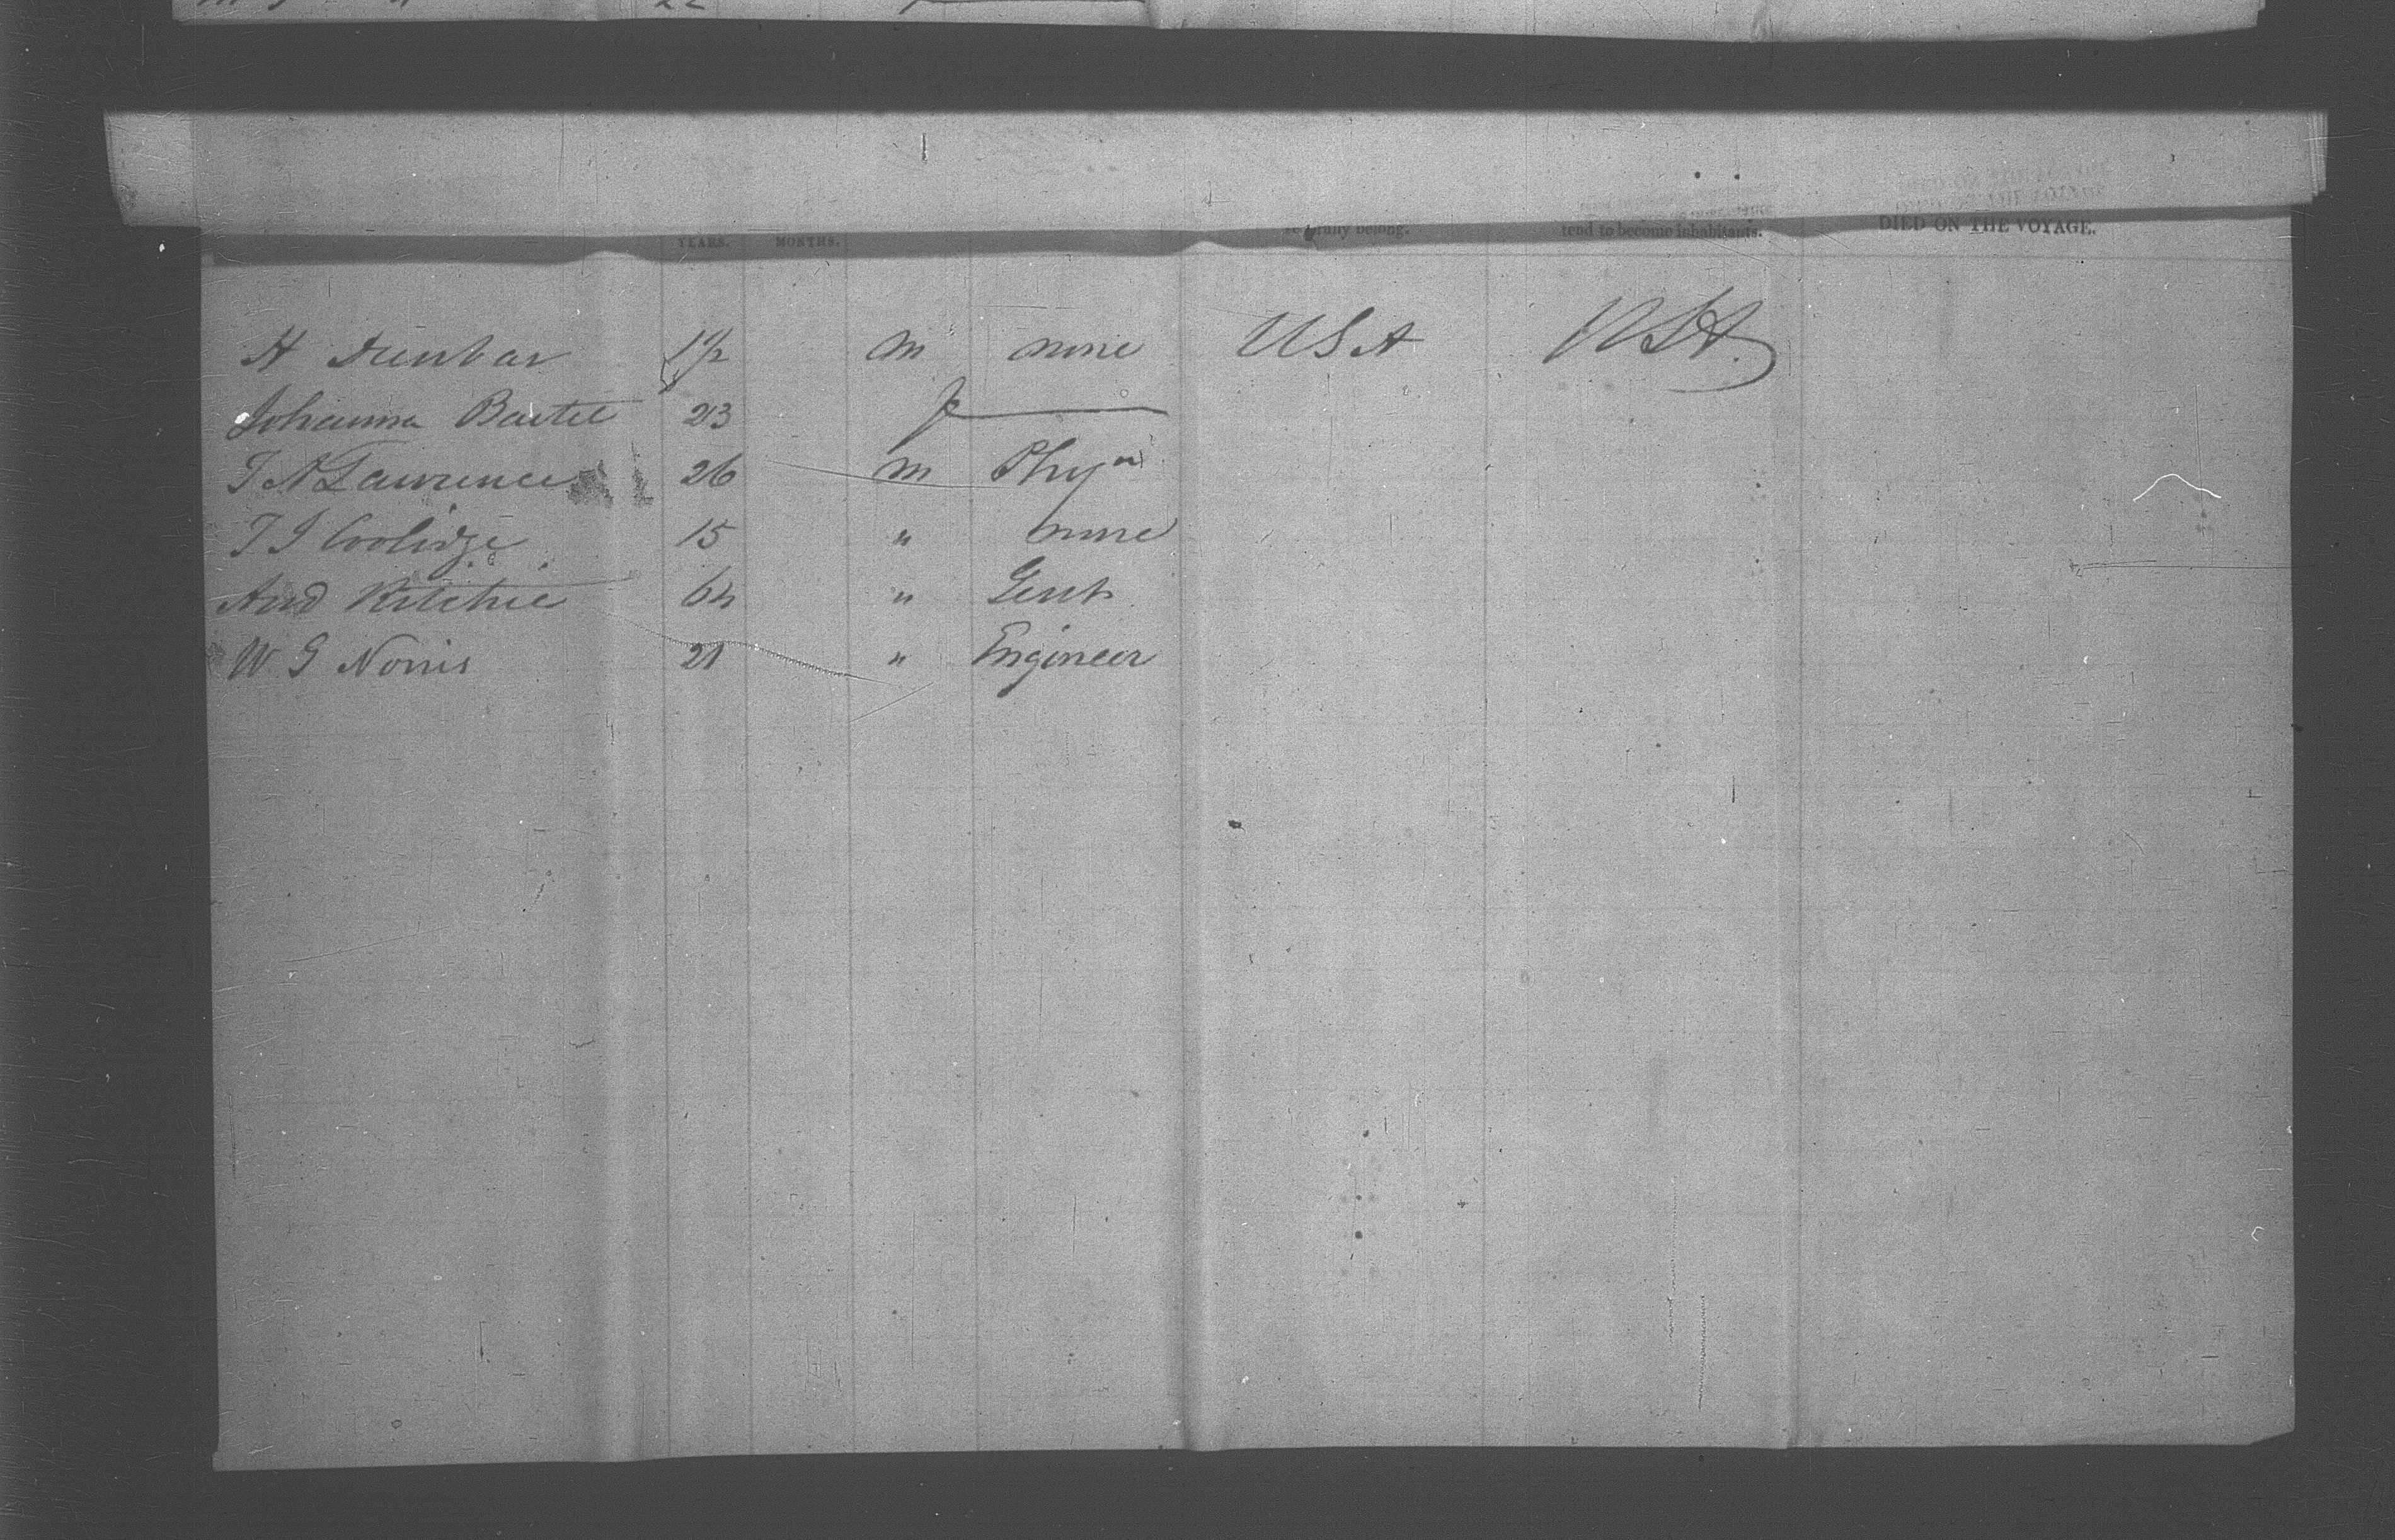 22
YEARS. MONTHS. belong. tend to become inhabitants. DIED ON THE VOYAGE.
H Dunbar 1 1/2 m none USA USA.
Johanna Bartel 23 f
T N Lawrence 26 m Phyn
T J Coolidge 15 " none
And Ritchie 64 " Gent
W G Norris 21 " Engineer